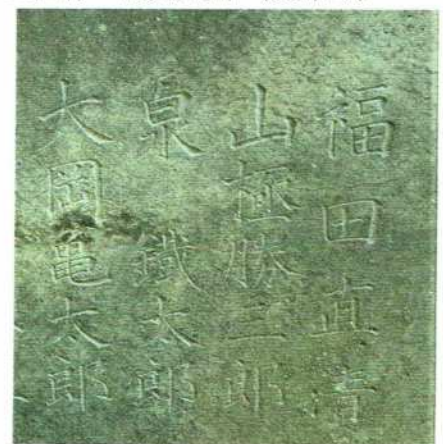 福田直清
山極勝三郎
泉 鐵太郎
大岡亀太郎